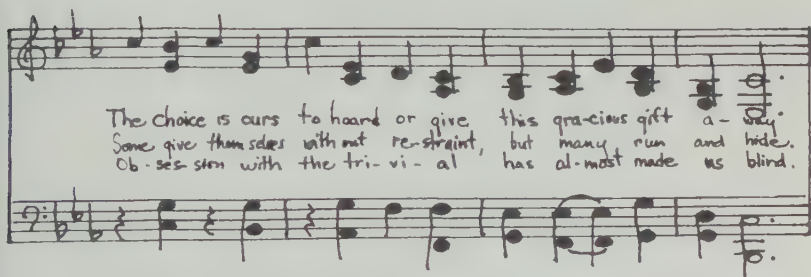 The choice is ours to hoard or give this gra-cious gift a-way
Some give themselves without re-straint, but many run and hide.
Ob-ses-sion with the tri-vi-al has al-most made us blind.